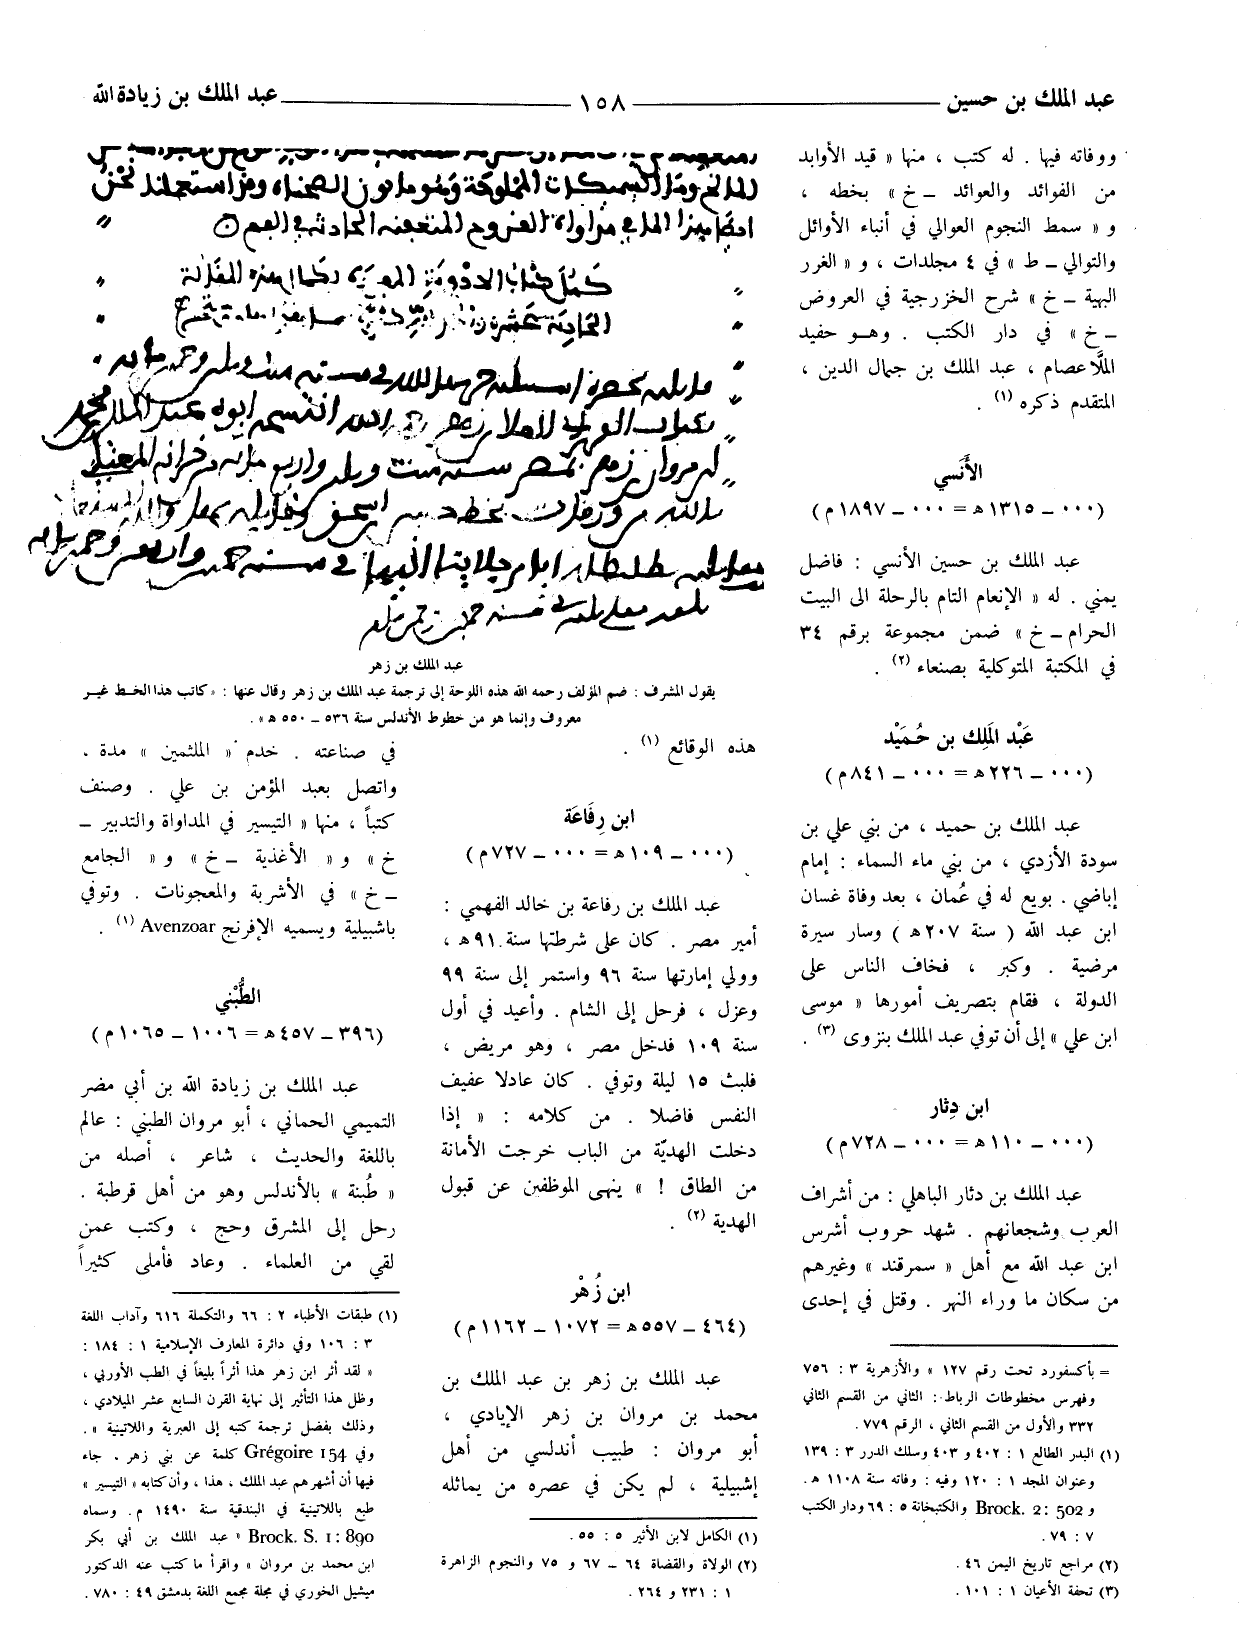 عبد الملك بن حسين ــــ ١٥٨ ــــ عبد الملك بن زيادة الله
ووفاته فيها . له كتب ، منها « قيد الأوابد
من الفوائد والعوائد ـ خ » بخطه ،
و « سمط النجوم العوالي في أنباء الأوائل
والتوالي ـ ط » في ٤ مجلدات ، و « الغرر
البهية ـ خ » شرح الخزرجية في العروض
ـ خ » في دار الكتب . وهـو حفيد
الملَّا عصام ، عبد الملك بن جمال الدين ،
المتقدم ذكره (١) .
الأَنَسي
(٠٠٠ ـ ١٣١٥ هـ = ٠٠٠ ـ ١٨٩٧ م)
عبد الملك بن حسين الأنسي : فاضل
يمني . له « الإنعام التام بالرحلة الى البيت
الحرام ـ خ » ضمن مجموعة برقم ٣٤
في المكتبة المتوكلية بصنعاء (٢) .
عَبْد المَلِك بن حُمَيْد
(٠٠٠ ـ ٢٢٦ هـ = ٠٠٠ ـ ٨٤١ م)
عبد الملك بن حميد ، من بني علي بن
سودة الأزدي ، من بني ماء السماء : إمام
إباضي . بويع له في عُمان ، بعد وفاة غسان
ابن عبد الله ( سنة ٢٠٧ هـ ) وسار سيرة
مرضية . وكبر ، فخاف الناس على
الدولة ، فقام بتصريف أمورها « موسى
ابن علي » إلى أن توفي عبد الملك بنزوى (٣) .
ابن دِثار
(٠٠٠ ـ ١١٠ هـ = ٠٠٠ ـ ٧٢٨ م)
عبد الملك بن دثار الباهلي : من أشراف
العرب وشجعانهم . شهد حروب أشرس
ابن عبد الله مع أهل « سمرقند » وغيرهم
من سكان ما وراء النهر . وقتل في إحدى
= بأكسفورد تحت رقم ١٢٧ » والأزهرية ٣ : ٧٥٦
وفهرس مخطوطات الرباط : الثاني من القسم الثاني
٣٣٢ والأول من القسم الثاني ، الرقم ٧٧٩ .
(١) البدر الطالع ١ : ٤٠٢ و ٤٠٣ وسلك الدرر ٣ : ١٣٩
وعنوان المجد ١ : ١٢٠ وفيه : وفاته سنة ١١٠٨ هـ .
و Brock. 2: 502 والكتبخانة ٥ : ٦٩ ودار الكتب
٧ : ٧٩ .
(٢) مراجع تاريخ اليمن ٤٦ .
(٣) تحفة الأعيان ١ : ١٠١ .
عبد الملك بن زهر
يقول المشرف : ضم المؤلف رحمه الله هذه اللوحة إلى ترجمة عبد الملك بن زهر وقال عنها : « كاتب هذا الخط غير
معروف وإنما هو من خطوط الأندلس سنة ٥٣٦ ـ ٥٥٠ هـ » .
هذه الوقائع (١) .
ابن رِفَاعَة
(٠٠٠ ـ ١٠٩ هـ = ٠٠٠ ـ ٧٢٧ م)
عبد الملك بن رفاعة بن خالد الفهمي :
أمير مصر . كان على شرطتها سنة ٩١ هـ ،
وولي إمارتها سنة ٩٦ واستمر إلى سنة ٩٩
وعزل ، فرحل إلى الشام . وأعيد في أول
سنة ١٠٩ فدخل مصر ، وهو مريض ،
فلبث ١٥ ليلة وتوفي . كان عادلا عفيف
النفس فاضلا . من كلامه : « إذا
دخلت الهديّة من الباب خرجت الأمانة
من الطاق ! » ينهى الموظفين عن قبول
الهدية (٢) .
ابن زُهْر
(٤٦٤ ـ ٥٥٧ هـ = ١٠٧٢ ـ ١١٦٢ م)
عبد الملك بن زهر بن عبد الملك بن
محمد بن مروان بن زهر الإيادي ،
أبو مروان : طبيب أندلسي من أهل
إشبيلية ، لم يكن في عصره من يماثله
(١) الكامل لابن الأثير ٥ : ٥٥ .
(٢) الولاة والقضاة ٦٤ ـ ٦٧ و ٧٥ والنجوم الزاهرة
١ : ٢٣١ و ٢٦٤ .
في صناعته . خدم « الملثمين » مدة ،
واتصل بعبد المؤمن بن علي . وصنف
كتباً ، منها « التيسير في المداواة والتدبير ـ
خ » و « الأغذية ـ خ » و « الجامع
ـ خ » في الأشربة والمعجونات . وتوفي
باشبيلية ويسميه الإفرنج Avenzoar (١) .
الطُّبْني
(٣٩٦ ـ ٤٥٧ هـ = ١٠٠٦ ـ ١٠٦٥ م)
عبد الملك بن زيادة الله بن أبي مضر
التميمي الحماني ، أبو مروان الطبني : عالم
باللغة والحديث ، شاعر ، أصله من
« طُبنة » بالأندلس وهو من أهل قرطبة .
رحل إلى المشرق وحج ، وكتب عمن
لقي من العلماء . وعاد فأملى كثيراً
(١) طبقات الأطباء ٢ : ٦٦ والتكملة ٦١٦ وآداب اللغة
٣ : ١٠٦ وفي دائرة المعارف الإسلامية ١ : ١٨٤ :
« لقد أثر ابن زهر هذا أثراً بليغاً في الطب الأوربي ،
وظل هذا التأثير إلى نهاية القرن السابع عشر الميلادي ،
وذلك بفضل ترجمة كتبه إلى العبرية واللاتينية » .
وفي Grégoire 154 كلمة عن بني زهر . جاء
فيها أن أشهرهم عبد الملك ، هذا ، وأن كتابه « التيسير »
طبع باللاتينية في البندقية سنة ١٤٩٠ م . وسماه
Brock. S. 1: 890 « عبد الملك بن أبي بكر
ابن محمد بن مروان » واقرأ ما كتب عنه الدكتور
ميشيل الخوري في مجلة مجمع اللغة بدمشق ٤٩ : ٧٨٠ .